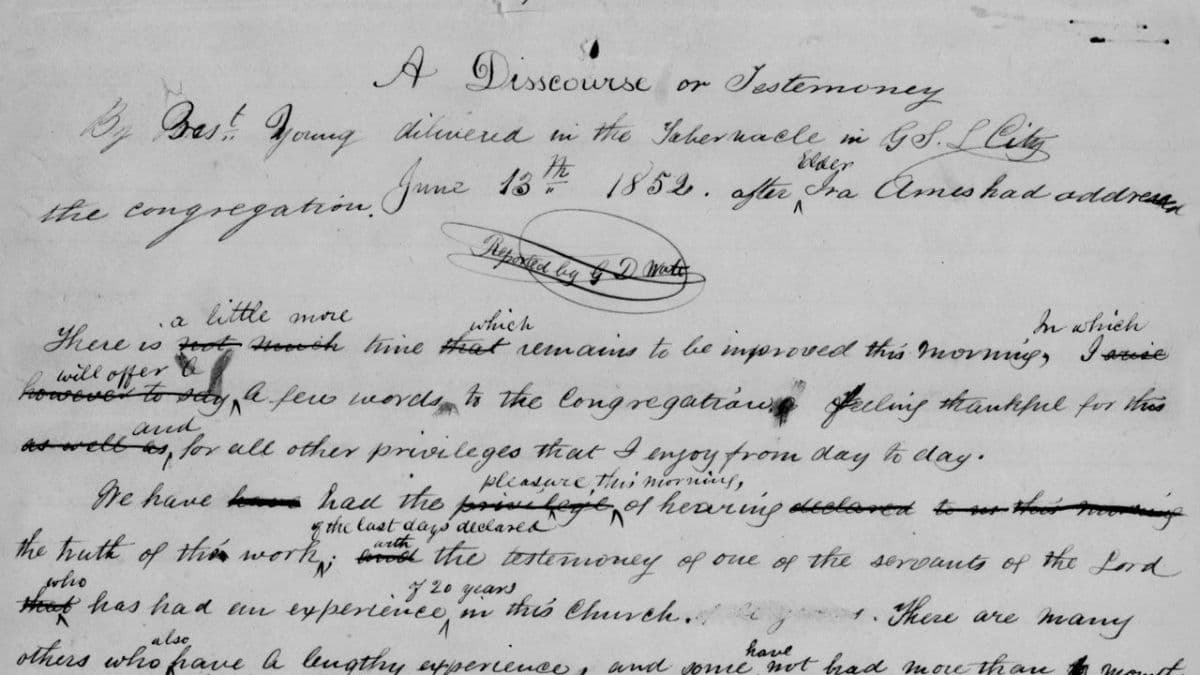 A Disscourse or Testemoney
By Prest. Young dilivered in the Tabernacle in G S. L City
Elder
June 13th 1852. after Ira Ames had addressed
the congregation.
Reported by G D Watt
a little more which In which
There is not much time that remains to be improved this morning, I arise
will offer
however to say, a few words to the Congregation, feeling thankful for this
and
as well as, for all other privileges that I enjoy from day to day.
pleasure this morning,
We have have had the privilege, of hearing declared to us this morning
of the last days declared
the truth of this work; and with the testemoney of one of the servants of the Lord
who of 20 years
that has had an experience, in this Church. There are many
also have
others who have a lengthy experience, and some not had more than